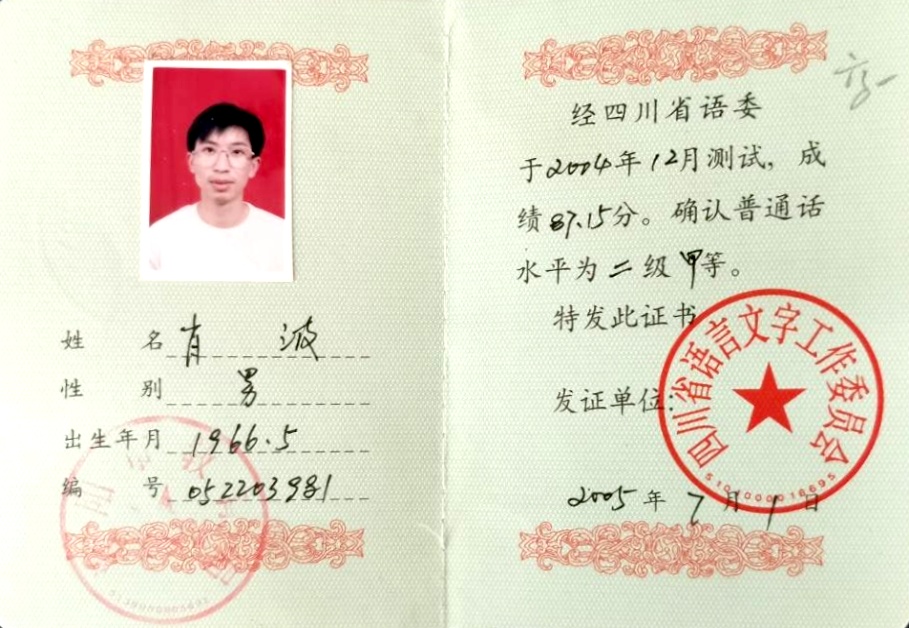 姓 名 肖 波
性 别 男
出生年月 1966.5
编 号 052203981
经四川省语委
于2004年12月测试，成
绩87.15分。确认普通话
水平为二级甲等。
特发此证书
发证单位：
四川省语言文字工作委员会
5101000016695
2005年7月1日